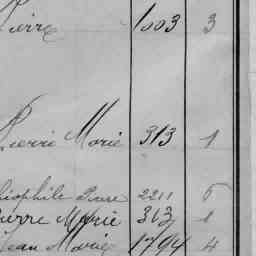 Pierre 1003 3
Pierre Marie 313 1
Théophile Pierre 2211 6
Pierre Marie 313 1
Jean Marie 1794 4